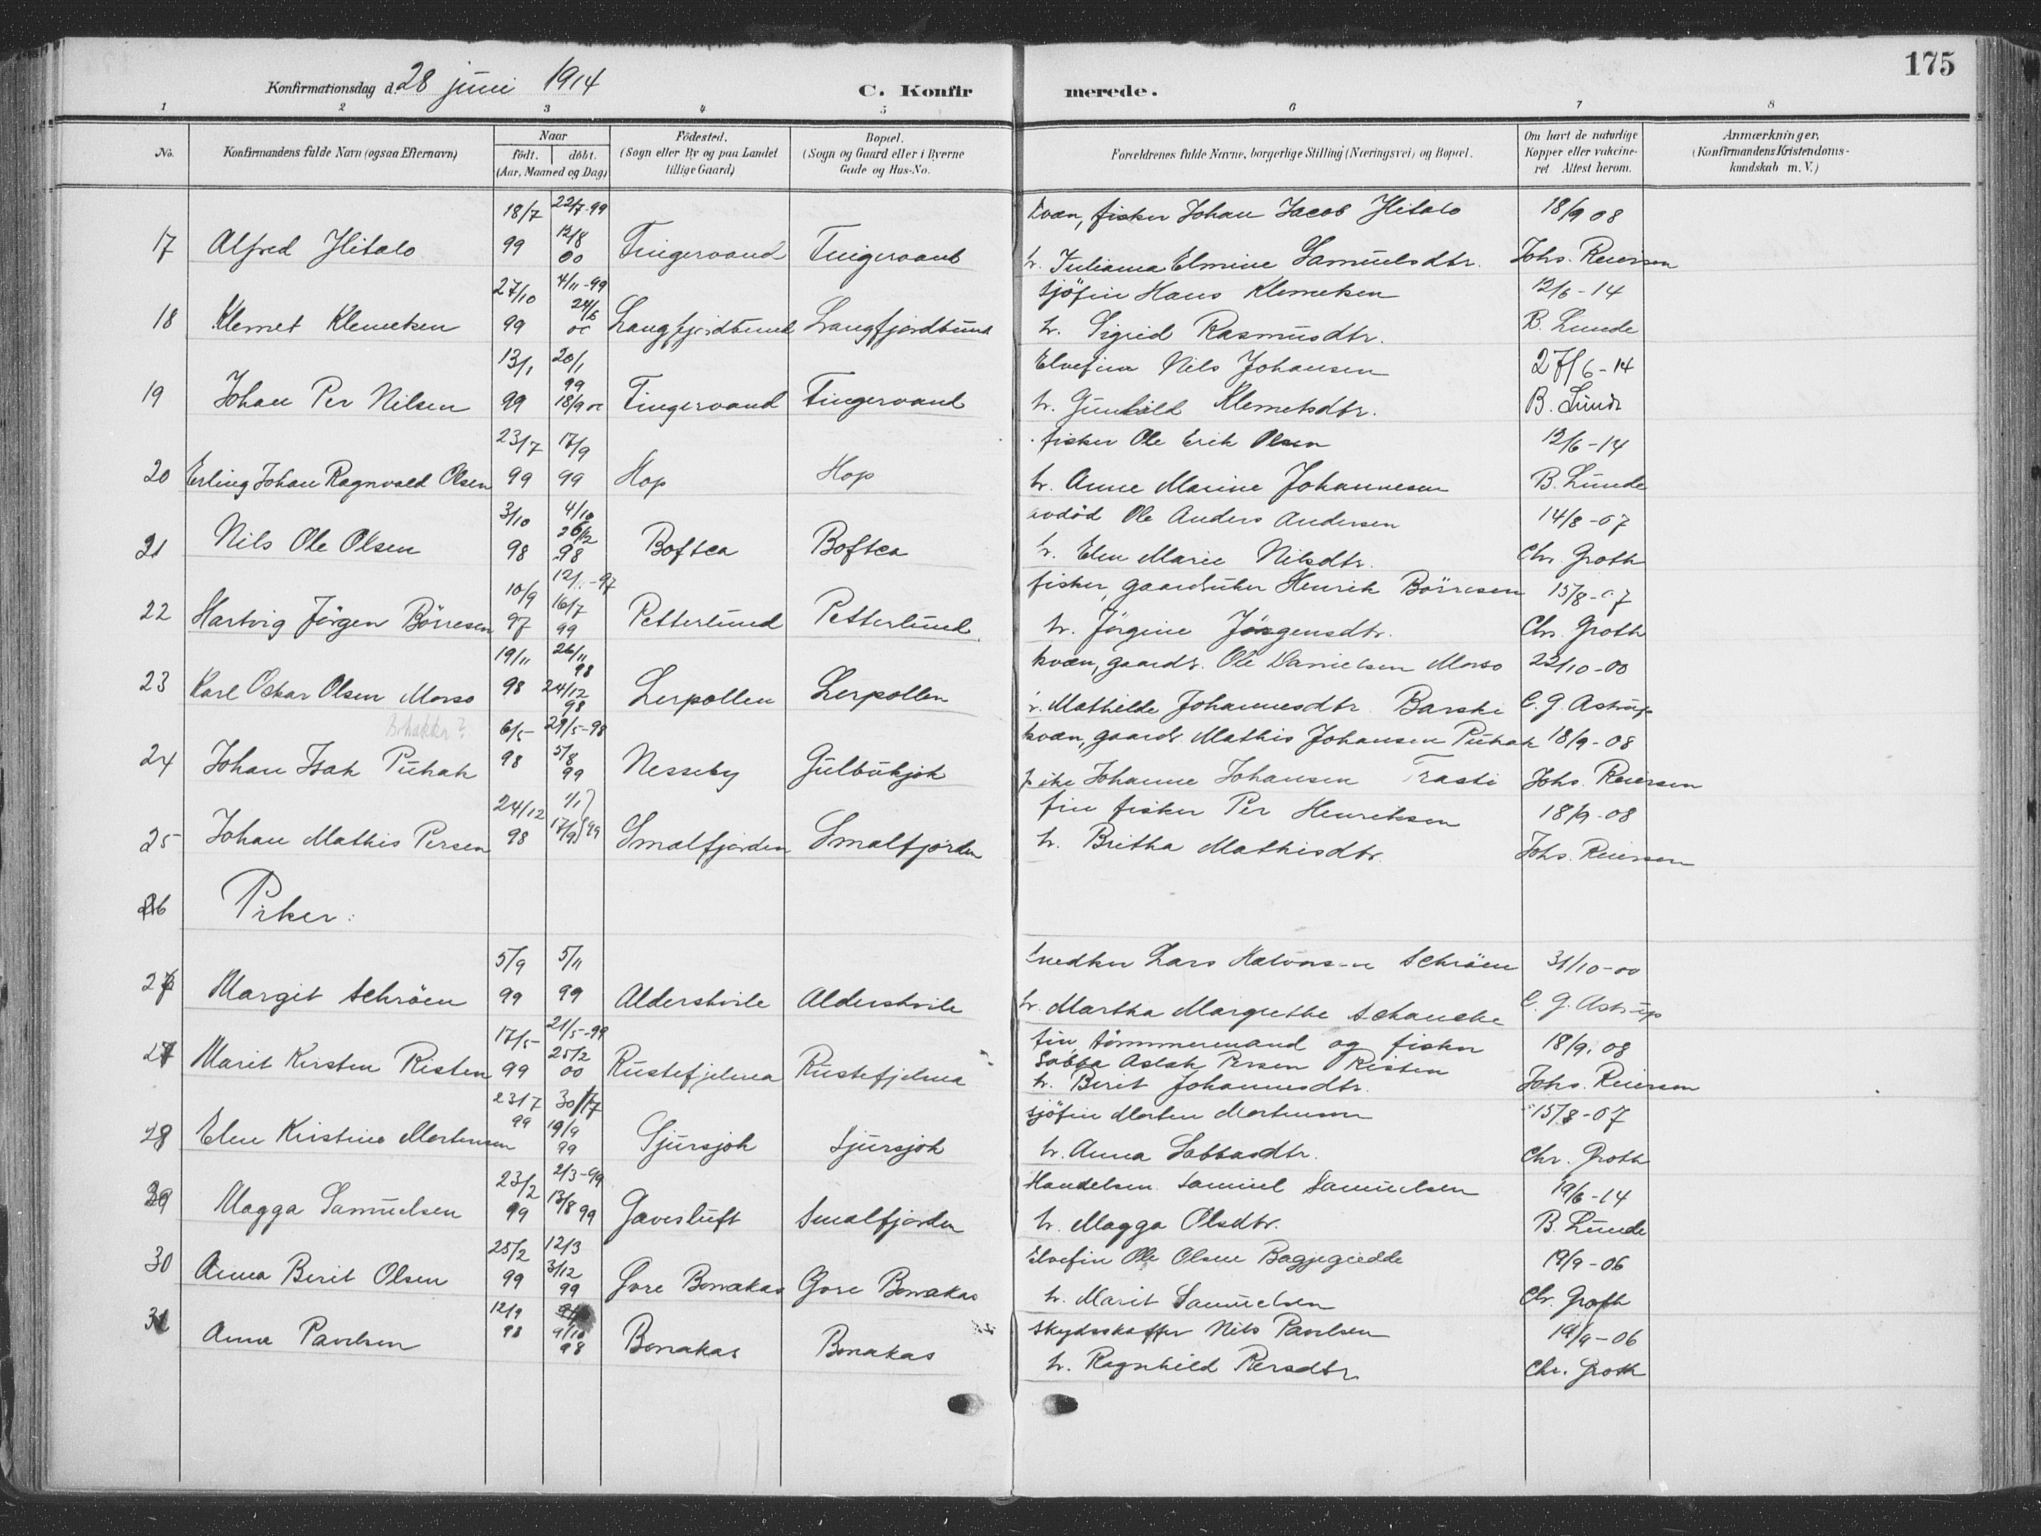 175
Konfirmationsdag d. 28 juni 1914 C. Konfirmerede.
1 2 3 4 5 6 7 8
No. Konfirmandens fulde Navn (ogsaa Efternavn) Naar födt. döbt. (Aar, Maaned og Dag) Födested. (Sogn eller By og paa Landet tillige Gaard) Bopæl. (Sogn og Gaard eller i Byerne Gade og Hus-No. Forældrenes fulde Navne, borgerlige Stilling (Næringsvei) og Bopæl. Om havt de naturlige Kopper eller vakcineret. Attest herom. Anmærkninger, (Konfirmandens Kristendomskundskab m. V.)
18/7 22/7-99 kvæn, fisker Johan Jacob Ylitalo 18/9 08
17 Alfred Ylitalo 99 12/8 00 Fingervand Fingervand h. Juliana Elmine Samuelsdtr. Johs. Reiersen
27/10 4/11-99 sjöfin Hans Klemetsen 12/6-14
18 Klemet Klemetsen 99 24/6 00 Langfjordbund Langfjordbund h. Sigrid Rasmusdtr. B. Lunde
13/1 20/1 Elvefin Nils Johansen 27/6-14
19 Johan Per Nilsen 99 99 18/9 00 Fingervand Fingervand h. Gunhild Klemetsdtr. B. Lunde
23/7 17/9 fisker Ole Erik Olsen 12/6-14
20 Erling Johan Ragnvald Olsen 99 99 Hop Hop h. Anne Marine Johannesen B. Lunde
3/10 4/10 avdöd Ole Anders Andersen 14/8-07
21 Nils Ole Olsen 98 26/12 98 Boftca Boftca h. Elen Marie Nilsdtr. Chr. Groth
10/9 12/ -97 fisker, gaardbruker Henrik Börresen 15/8-07
22 Hartvig Jörgen Börresen 97 16/7 99 Petterlund Petterlund h. Jörgine Jörgensdtr. Chr. Groth
19/11 26/11 98 kvæn, gaardb. Ole Danielsen Morso 22/10-00
23 Karl Oskar Olsen Morso 98 24/12 98 Lerpollen Lerpollen h. Mathilde Johannesdtr. Barski C. G. Astrup
6/5 29/5-98 kvæn, gaardb. Mathis Johansen Puhak 18/9-08
24 Johan Isak Puhak 98 5/8 99 Nesseby Gulbukjok pike Johanne Johansen Trasti Johs. Reiersen
24/12 1/1 fin fisker Per Henriksen 18/9-08
25 Johan Mathis Persen 98 17/9 99 Smalfjorden Smalfjorden h. Britha Mathisdtr. Johs. Reiersen
26 Piker:
5/9 5/11 snedker Lars Schröen 31/10-00
26 Margit Schröen 99 99 Aldershvile Aldershvile h. Martha Margrethe Schancke C. G. Astrup
17/5 21/5-99 fin tömmermand og fisker 18/9, 08
27 Marit Kirsten Risten 99 25/2 00 Rustefjelma Rustefjelma Sabba Aslak Persen Risten
h. Berit Johannesdtr. Johs. Reiersen
23/7 30/7 sjöfin Morten Mortensen 15/8-07
28 Elen Kristine Mortensen 99 19/9 99 Sjursjok Sjursjok h. Anna Sabbasdtr. Chr. Groth
23/2 2/3-99 Handelsm. Samuel Samuelsen 19/6-14
29 Magga Samuelsen 99 13/8 99 Gavesluft Smalfjorden h. Magga Olsdtr. B. Lunde
25/2 12/3 Elvefin Ole Olsen Bagjegiedde 19/9-06
30 Anna Berit Olsen 99 3/12 99 Gore Bonakas Gore Bonakas h. Marit Samuelsen Chr. Groth
12/9 skydsskaffer Nils Pavelsen 19/9-06
31 Anna Pavelsen 98 9/10 98 Bonakas Bonakas h. Ragnhild Persdtr. Chr. Groth